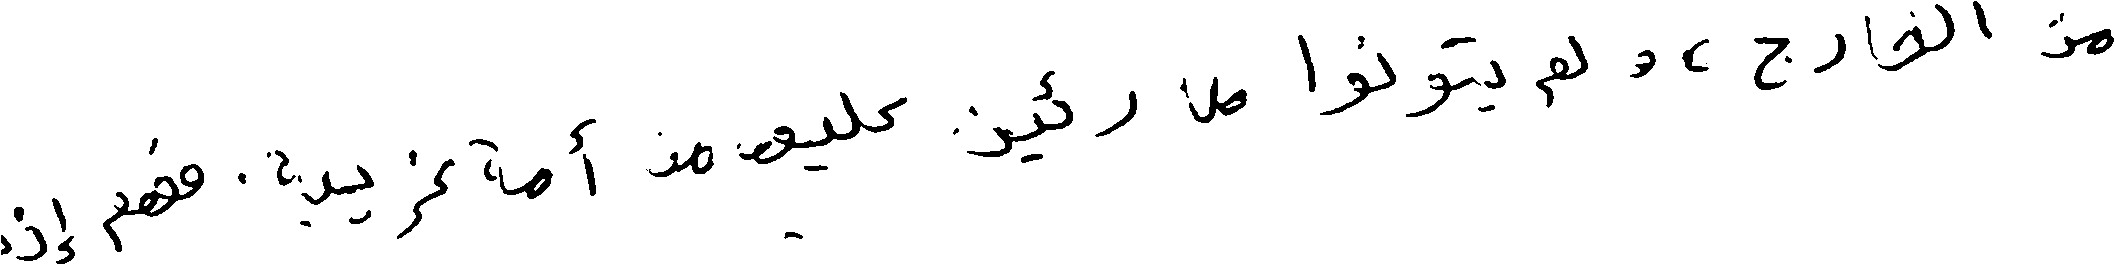 من الخارج ، ولم يتونوا طارئين عليه من أمة غريبة . فهم إذن